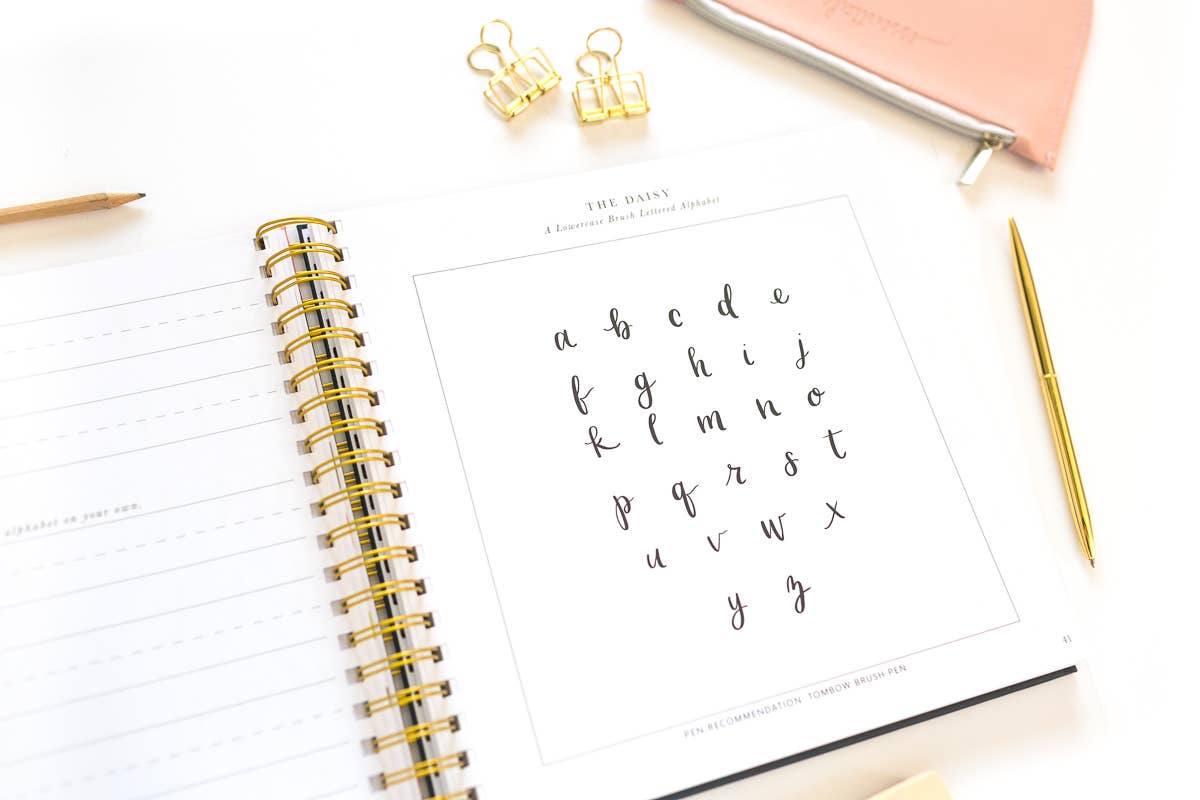 THE DAISY
A Lowercase Brush Lettered Alphabet
a b c d e
f g h i j
k l m n o
p q r s t
u v w x
y z
PEN RECOMMENDATION: TOMBOW BRUSH PEN
41
alphabet on your own.
essentials